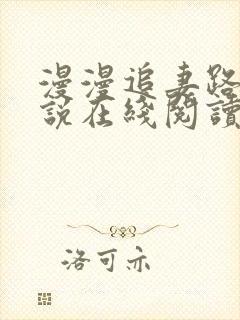 漫漫追妻路
說在綫閱讀
洛可亦